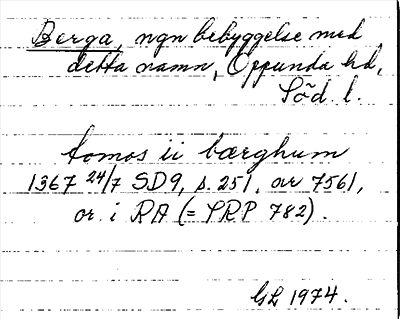 Berga, ngn bebyggelse med
detta namn, Oppunda hd,
Söd. l.
tomos ii bærghum
1367 24/7 SD9, s. 251, nr 7561,
or. i RA (= SRP 782).
GL 1974.